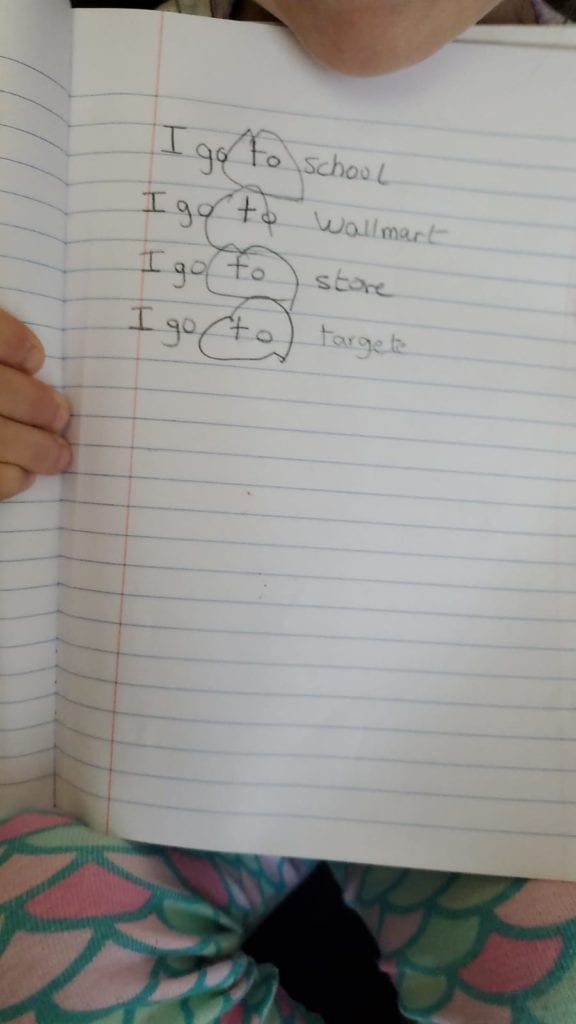 I go to school
I go to Wallmart
I go to store
I go to targete